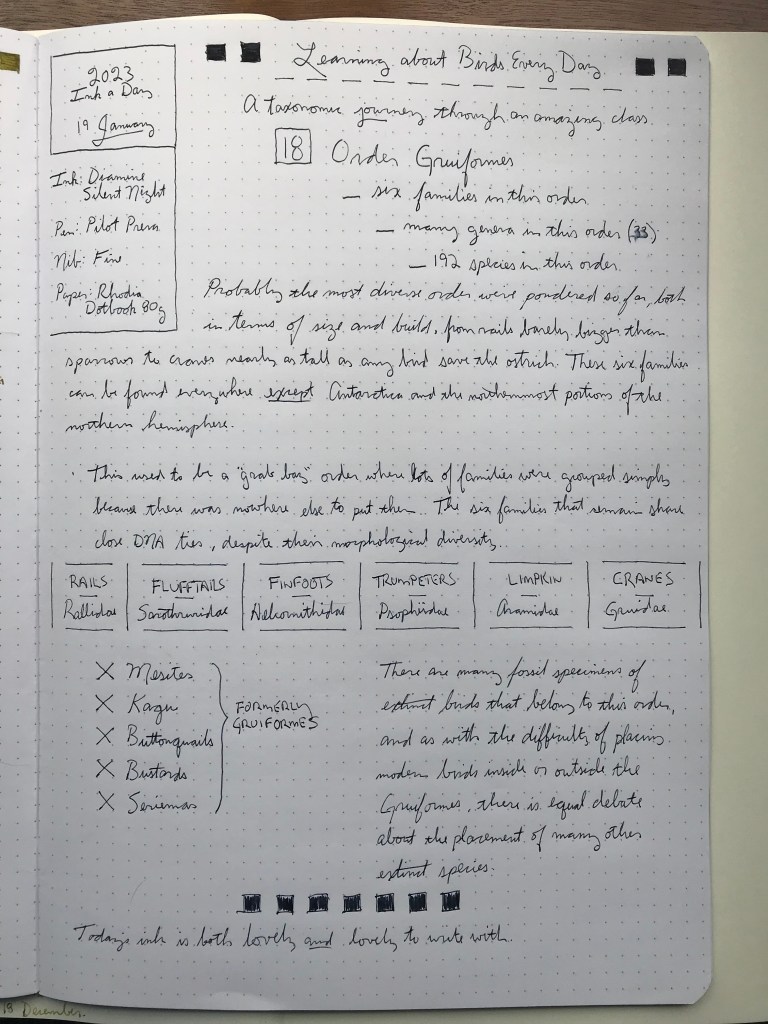 2023
Ink a Day
19 January
Ink: Diamine
Silent Night
Pen: Pilot Prera
Nib: Fine
Paper: Rhodia
Dotbook 80g
Learning about Birds Every Day
A taxonomic journey through an amazing class.
18 Order Gruiformes
— six families in this order
— many genera in this order (33)
— 192 species in this order
Probably the most diverse order we've pondered so far, both
in terms of size and build, from rails barely bigger than
sparrows to cranes nearly as tall as any bird save the ostrich. These six families
can be found everywhere except Antarctica and the northernmost portions of the
northern hemisphere.
This used to be a "grab bag" order where lots of families were grouped simply
because there was nowhere else to put them. The six families that remain share
close DNA ties, despite their morphological diversity.
RAILS FLUFFTAILS FINFOOTS TRUMPETERS LIMPKIN CRANES
Rallidae Sarothruridae Heliornithidae Psophiidae Aramidae Gruidae
X Mesites
X Kagu
X Buttonquails
X Bustards
X Seriemas
FORMERLY
GRUIFORMES
There are many fossil specimens of
extinct birds that belong to this order,
and as with the difficulty of placing
modern birds inside or outside the
Gruiformes, there is equal debate
about the placement of many other
extinct species.
Today's ink is both lovely and lovely to write with.
18 December